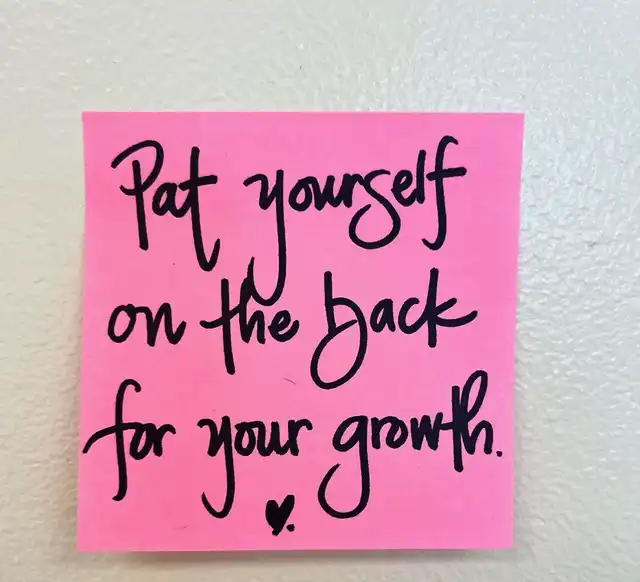 Pat yourself
on the back
for your growth.